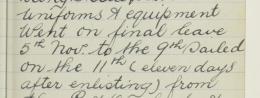 uniforms & equipment
Went on final leave
5th Nov. to the 9th Sailed
on the 11th (eleven days
after enlisting) from